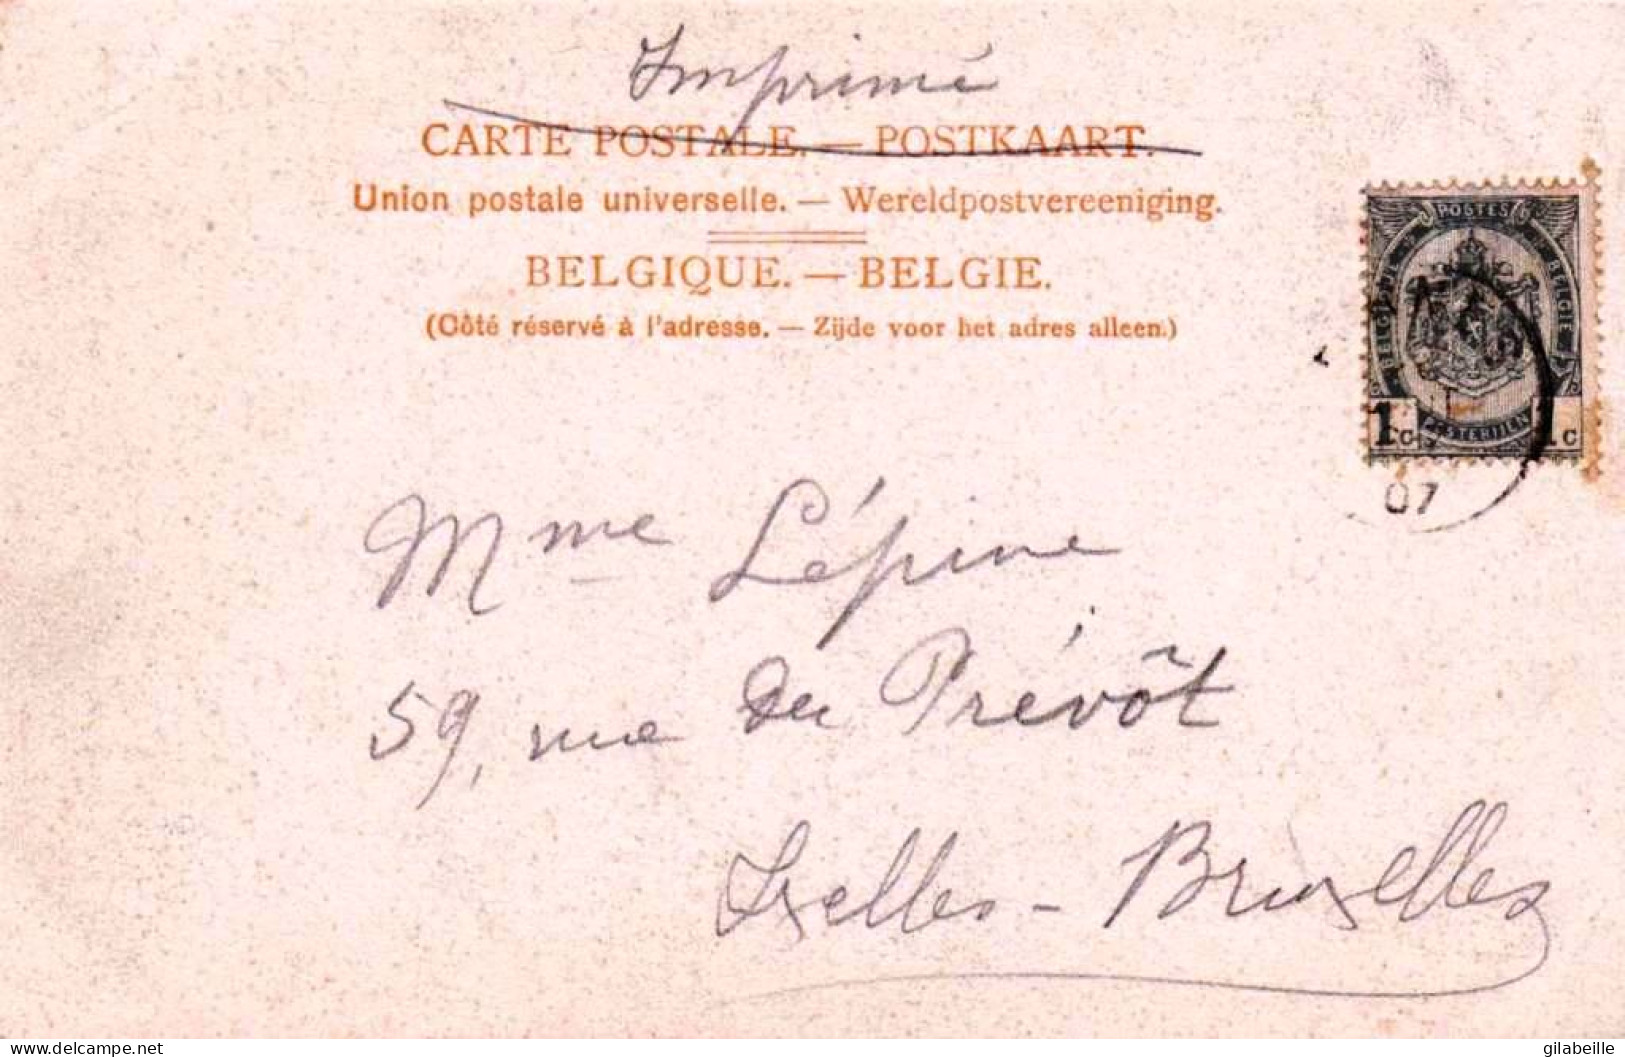 Imprimé
CARTE POSTALE. — POSTKAART.
Union postale universelle. — Wereldpostvereeniging.
BELGIQUE. — BELGIE.
(Côté réservé à l'adresse. — Zijde voor het adres alleen.)
POSTES
BELGIQUE BELGIE
POSTERIJEN
1c 1c
07
Mme Lépine
59, rue du Prévôt
Ixelles - Bruxelles
www.delcampe.net
gilabeille